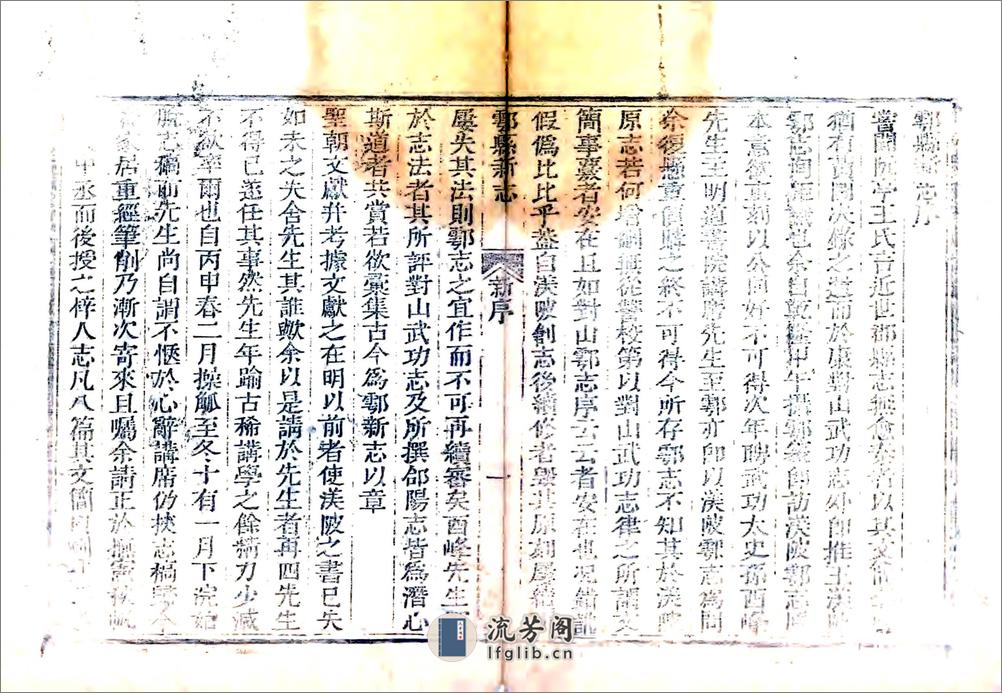 鄠縣新志序
嘗聞阮亭王氏言近世郡縣志無愈秦者以其文簡
猶有黃圖決錄之遺而於康對山武功志外即推王渼陂
鄠志詢
本意欲重刻以公同好不可得次年聘武功太史孫酉峰
先生主明道書院講席先生至鄠亦即以渼陂鄠志為問
余復懸重價購之終不可得今所存鄠志不知其於渼陂
原志若何增刪無從讐校第以對山武功志律之所謂文
簡事覈者安在且如對山鄠志序云云者安在也況錯訛
假偽比比乎蓋自渼陂創志後續修者毀其原刻屢續
鄠縣新志 新序 一
屢失其法則鄠志之宜作而不可再續審矣酉峰先生
於志法者其所評對山武功志及所撰郃陽志皆為潛心
斯道者共賞若欲彙集古今為鄠新志以章
聖朝文獻并考據文獻之在明以前者使渼陂之書已失
如未之失舍先生其誰歟余以是請於先生者再四先生
不得已遂任其事然先生年踰古稀講學之餘精力少減
不欲至爾也自丙申春二月操觚至冬十有一月下浣始
脫志稿而先生尚自謂不愜於心辭講席仍挾志稿歸
家居重經筆削乃漸次寄來且囑余請正於撫憲
中丞而後授之梓人志凡八篇其文簡
流芳阁
lfglib.cn